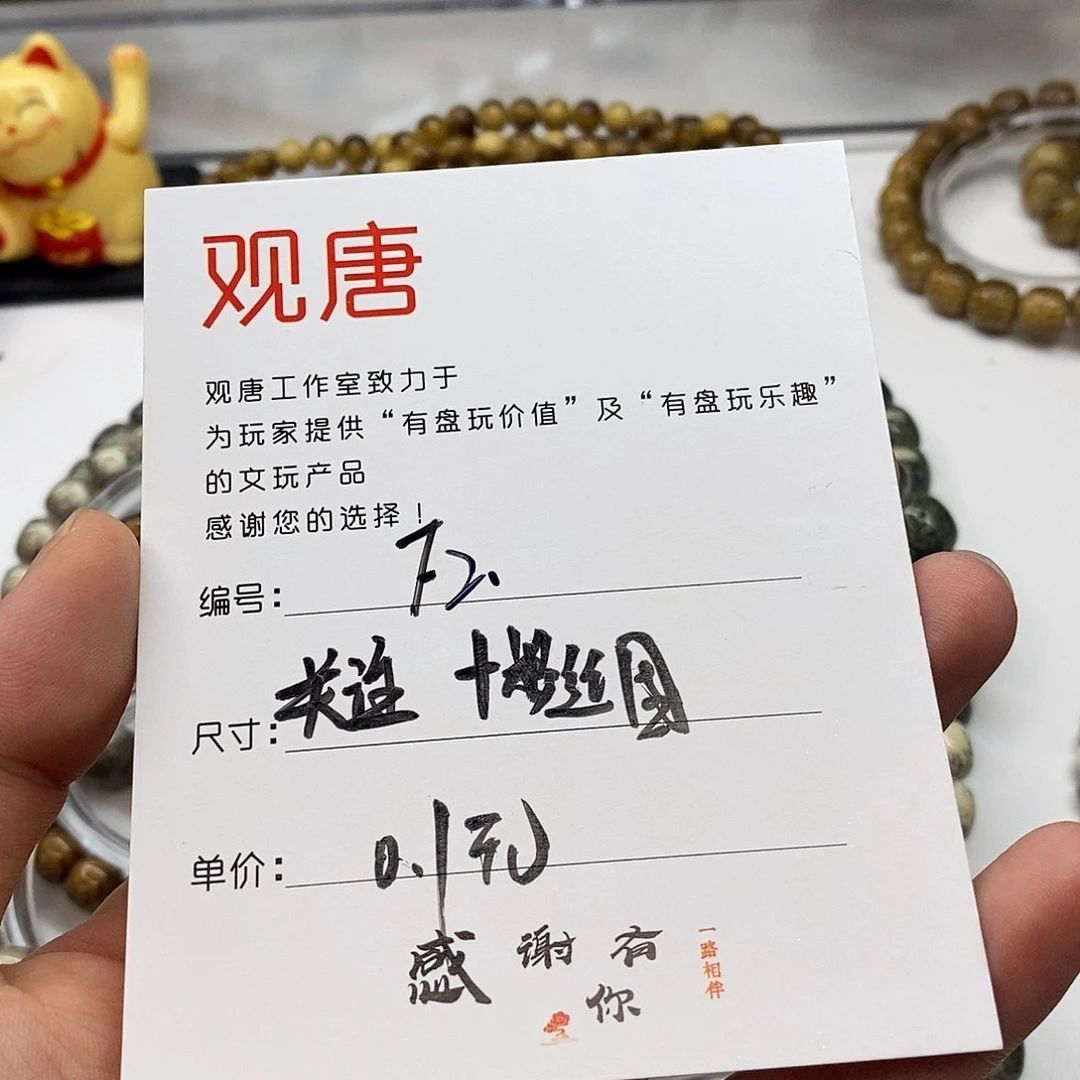 观唐
观唐工作室致力于
为玩家提供“有盘玩价值”及“有盘玩乐趣”
的文玩产品
感谢您的选择！
编号：72.
尺寸：关注 十粉丝团
单价：0.1元
感谢有你
一路相伴